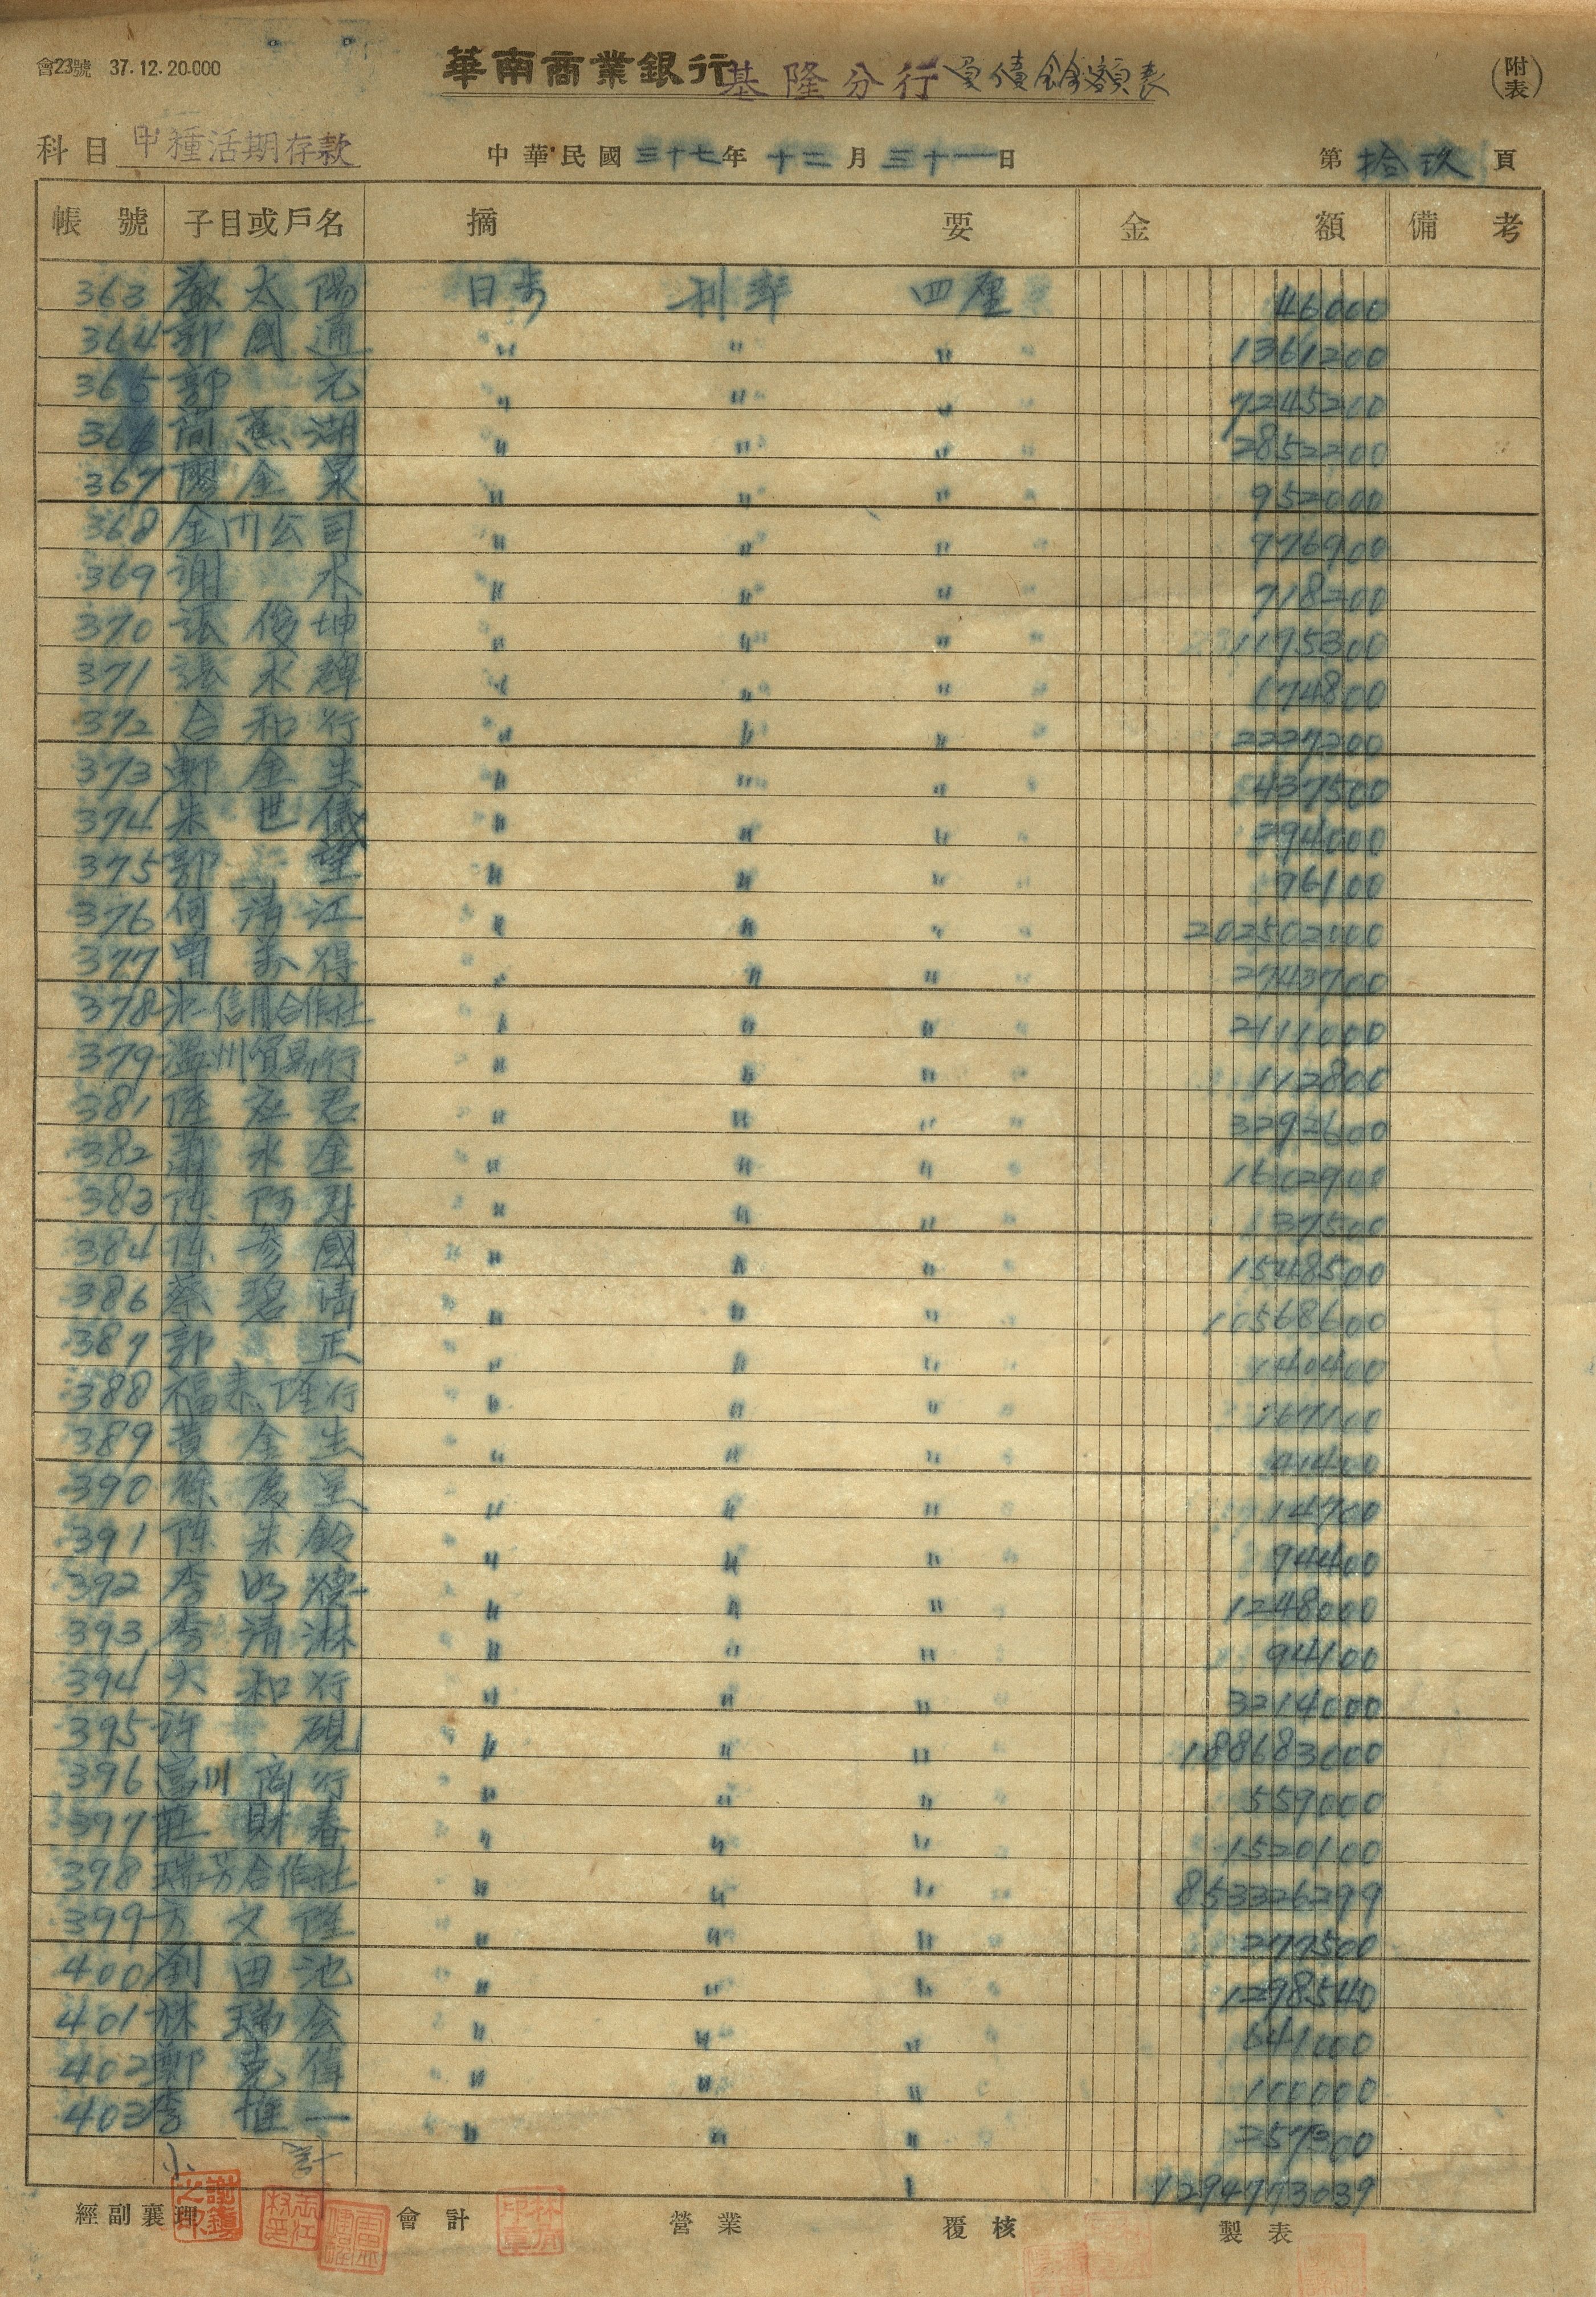 會23號 37.12.20.000
華南商業銀行基隆分行負債餘額表
(附表)
科目 甲種活期存款 中華民國三十七年十二月三十一日 第拾玖頁
帳號 子目或戶名 摘要 金額 備考
363 嚴太陽 日步 利率 四厘 46000
364 郭國通 〃 〃 〃 1361200
365 郭元 〃 〃 〃 7245200
366 簡蕉湖 〃 〃 〃 2852200
367 閻金泉 〃 〃 〃 952000
368 金門公司 〃 〃 〃 976900
369 謝水 〃 〃 〃 718200
370 張俊坤 〃 〃 〃 1195300
371 張水 〃 〃 〃 174800
372 合和行 〃 〃 〃 2227200
373 鄭金生 〃 〃 〃 437500
374 朱世儀 〃 〃 〃 294000
375 郭 〃 〃 〃 96100
376 何清江 〃 〃 〃 202502000
377 曾萬得 〃 〃 〃 2743700
378 信用合作社 〃 〃 〃 2111000
379 溫州貿易行 〃 〃 〃 112800
381 陸君 〃 〃 〃 3292600
382 蕭水金 〃 〃 〃 1602900
383 陳阿 〃 〃 〃 37500
384 陳國 〃 〃 〃 1548500
386 蔡 〃 〃 〃 10568600
387 郭正 〃 〃 〃 140400
388 福泰隆行 〃 〃 〃 167100
389 黃金生 〃 〃 〃 41400
390 徐慶 〃 〃 〃 14700
391 陳朱鈴 〃 〃 〃 94400
392 李明德 〃 〃 〃 1248000
393 李清淋 〃 〃 〃 94100
394 大和行 〃 〃 〃 3214000
395 許硯 〃 〃 〃 188683000
396 富川商行 〃 〃 〃 559000
397 莊財春 〃 〃 〃 1520100
398 瑞芳合作社 〃 〃 〃 853326299
399 方文陸 〃 〃 〃 277500
400 劉田池 〃 〃 〃 1298540
401 林瑞会 〃 〃 〃 641000
402 鄭克偉 〃 〃 〃 100000
403 李惟一 〃 〃 〃 257300
小計 1294773039
經副襄理 會計 營業 覆核 製表